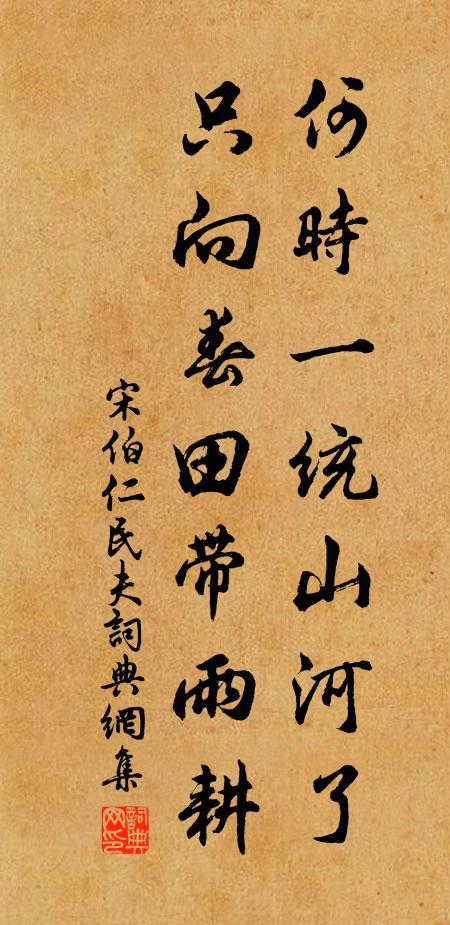 何時一統山河了
只向春田帶雨耕
宋伯仁民夫詞典網集
詞典网印